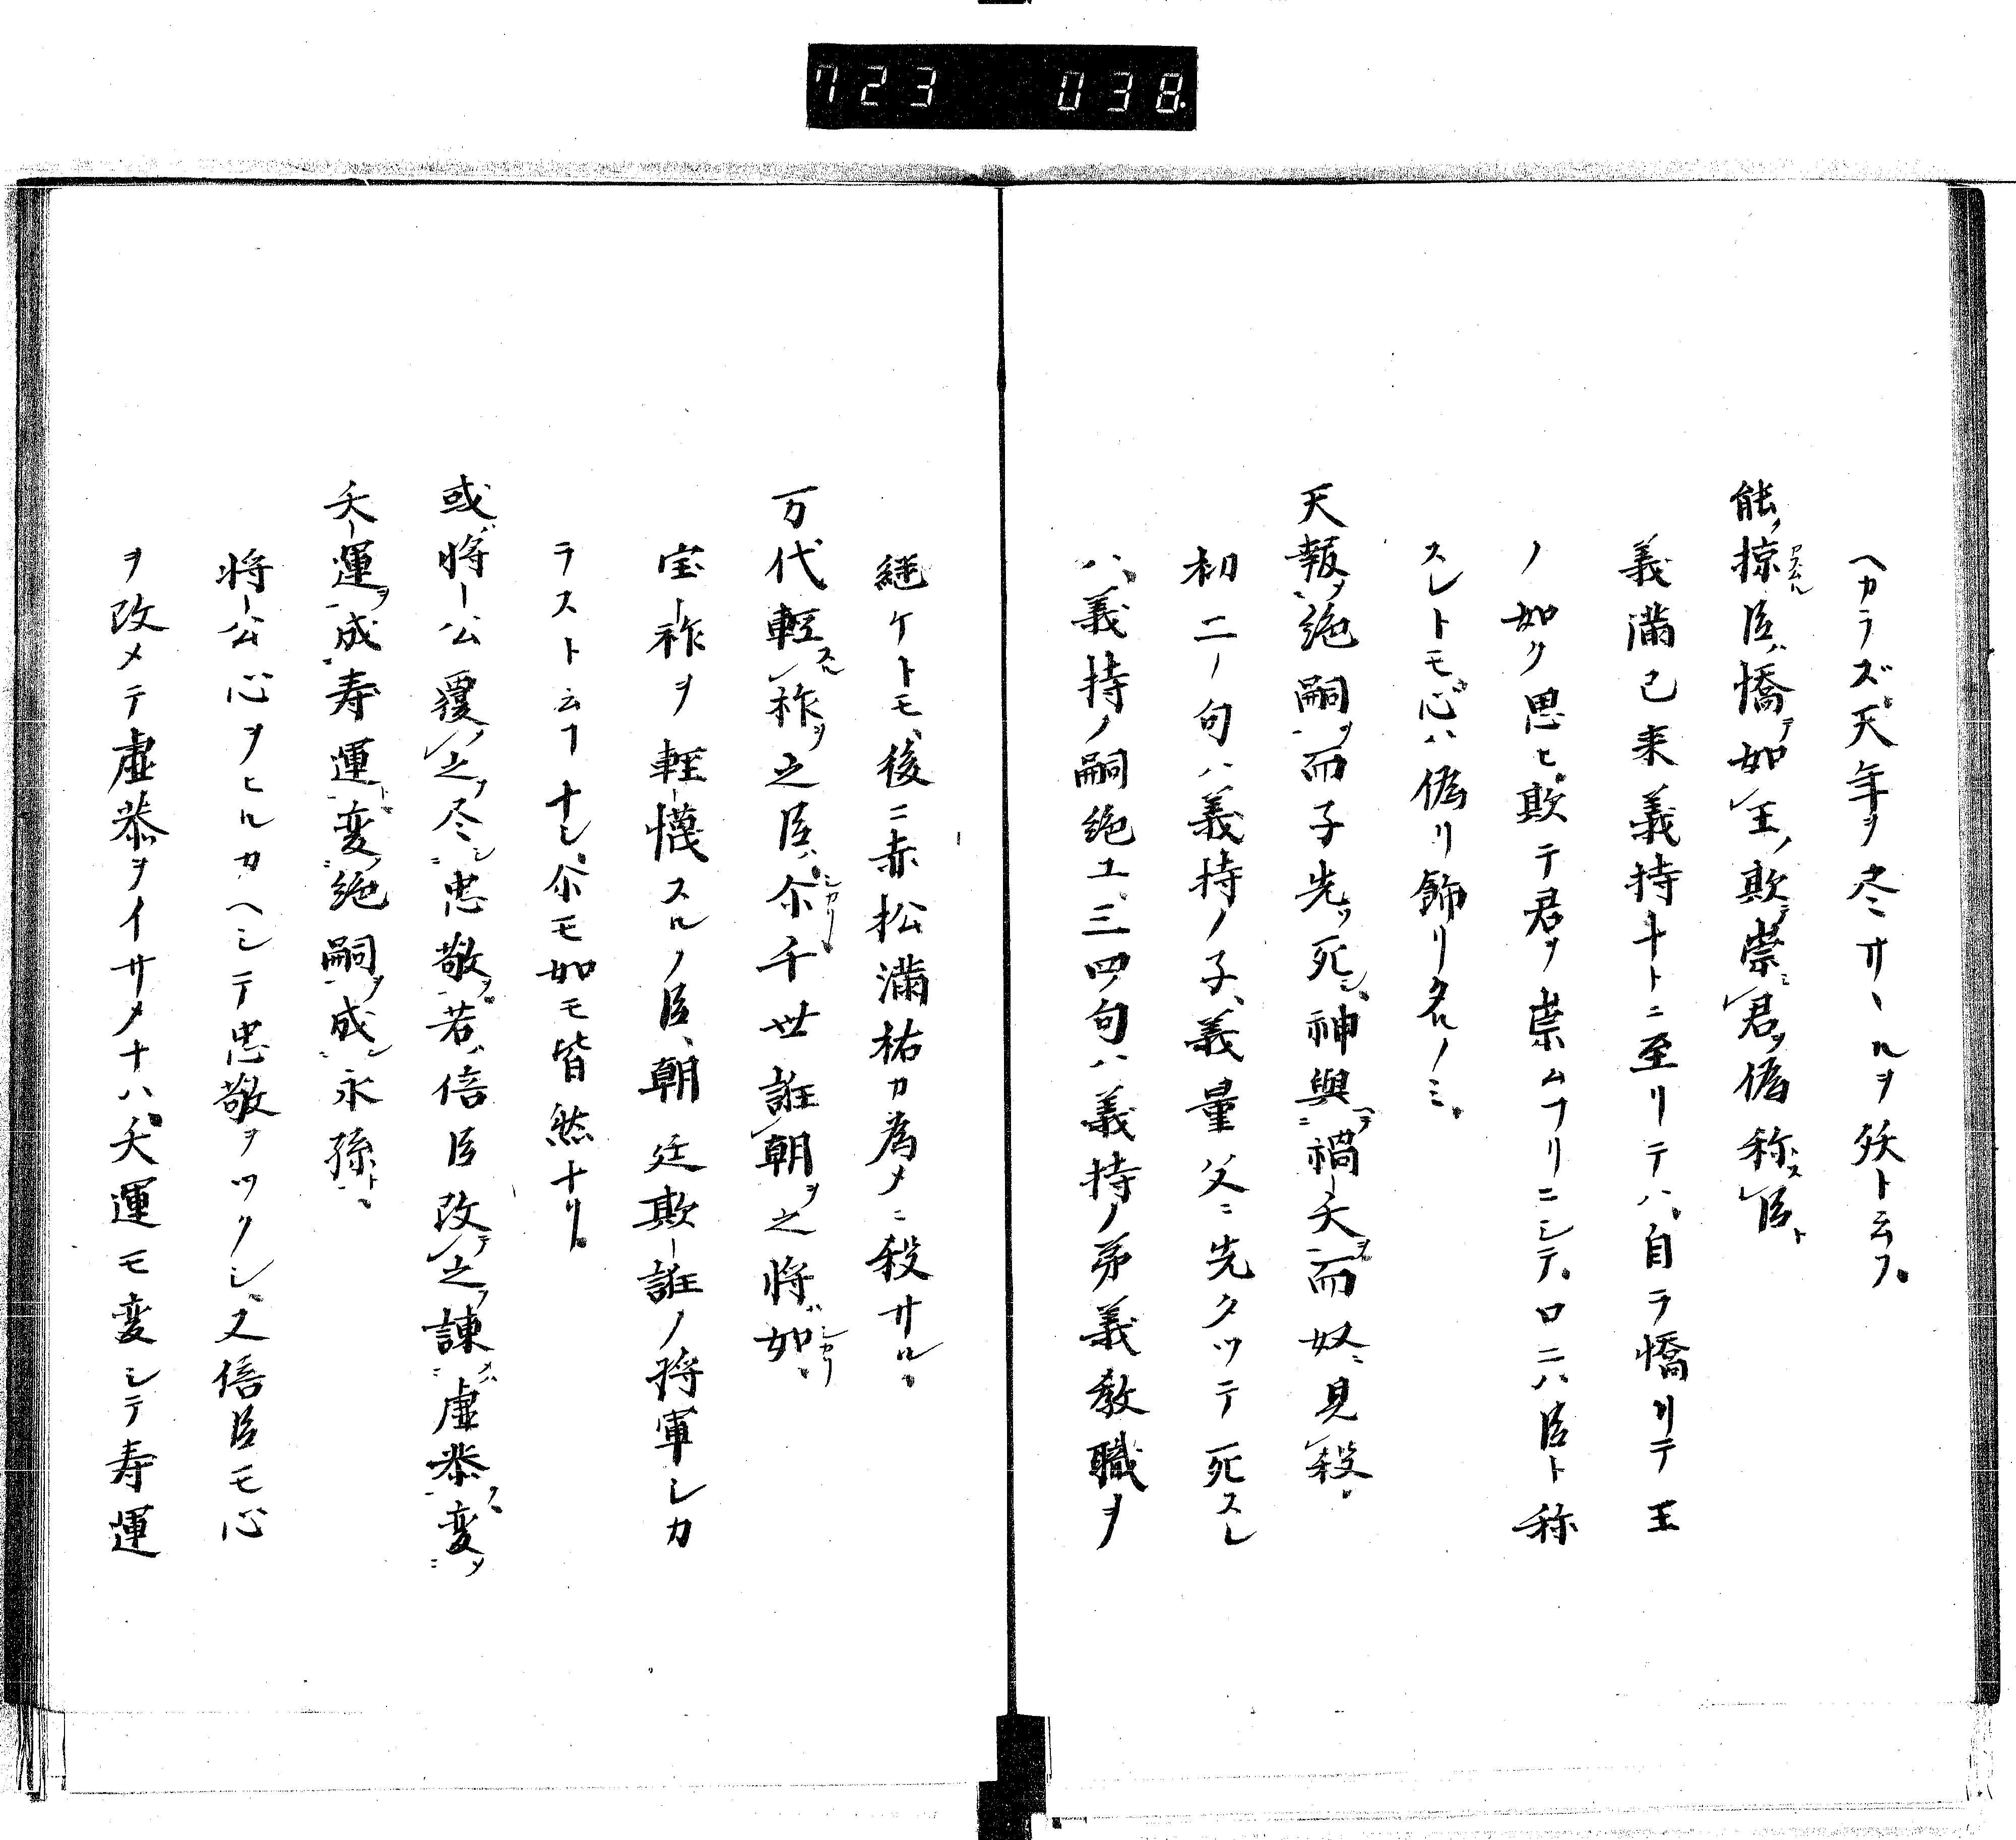 723 038
ヘカラズ天年ヲ尽サヽルヲ殀ト云フ。
能掠臣憍如王欺崇君偽称臣
義満已来義持ナトニ至リテハ自ラ憍リテ王
ノ如ク思ヒ欺テ君ヲ崇ムフリニシテ。口ニハ臣ト称
スレトモ心ハ偽リ飾リタルノミ。
天報絶嗣而子先死神與禍夭而奴見殺
初二ノ句ハ義持ノ子、義量父ニ先タツテ死スレ
ハ、義持ノ嗣絶エ、三四ノ句ハ義持ノ弟義教職ヲ
継ケトモ、後ニ赤松満祐カ為メニ殺サル。
万代軽祚之臣尓千世誑朝之将如
宝祚ヲ軽懱スルノ臣、朝廷欺誑ノ将軍シカ
ラスト云フナシ、尓モ如モ皆然ナリ。
或将公覆之尽忠敬若倍臣改之諌虚恭変
夭運成寿運変絶嗣成永孫
将公心ヲヒルカヘシテ忠敬ヲツクシ、又倍臣モ心
ヲ改メテ虚恭ヲイサメナハ夭運モ変シテ寿運